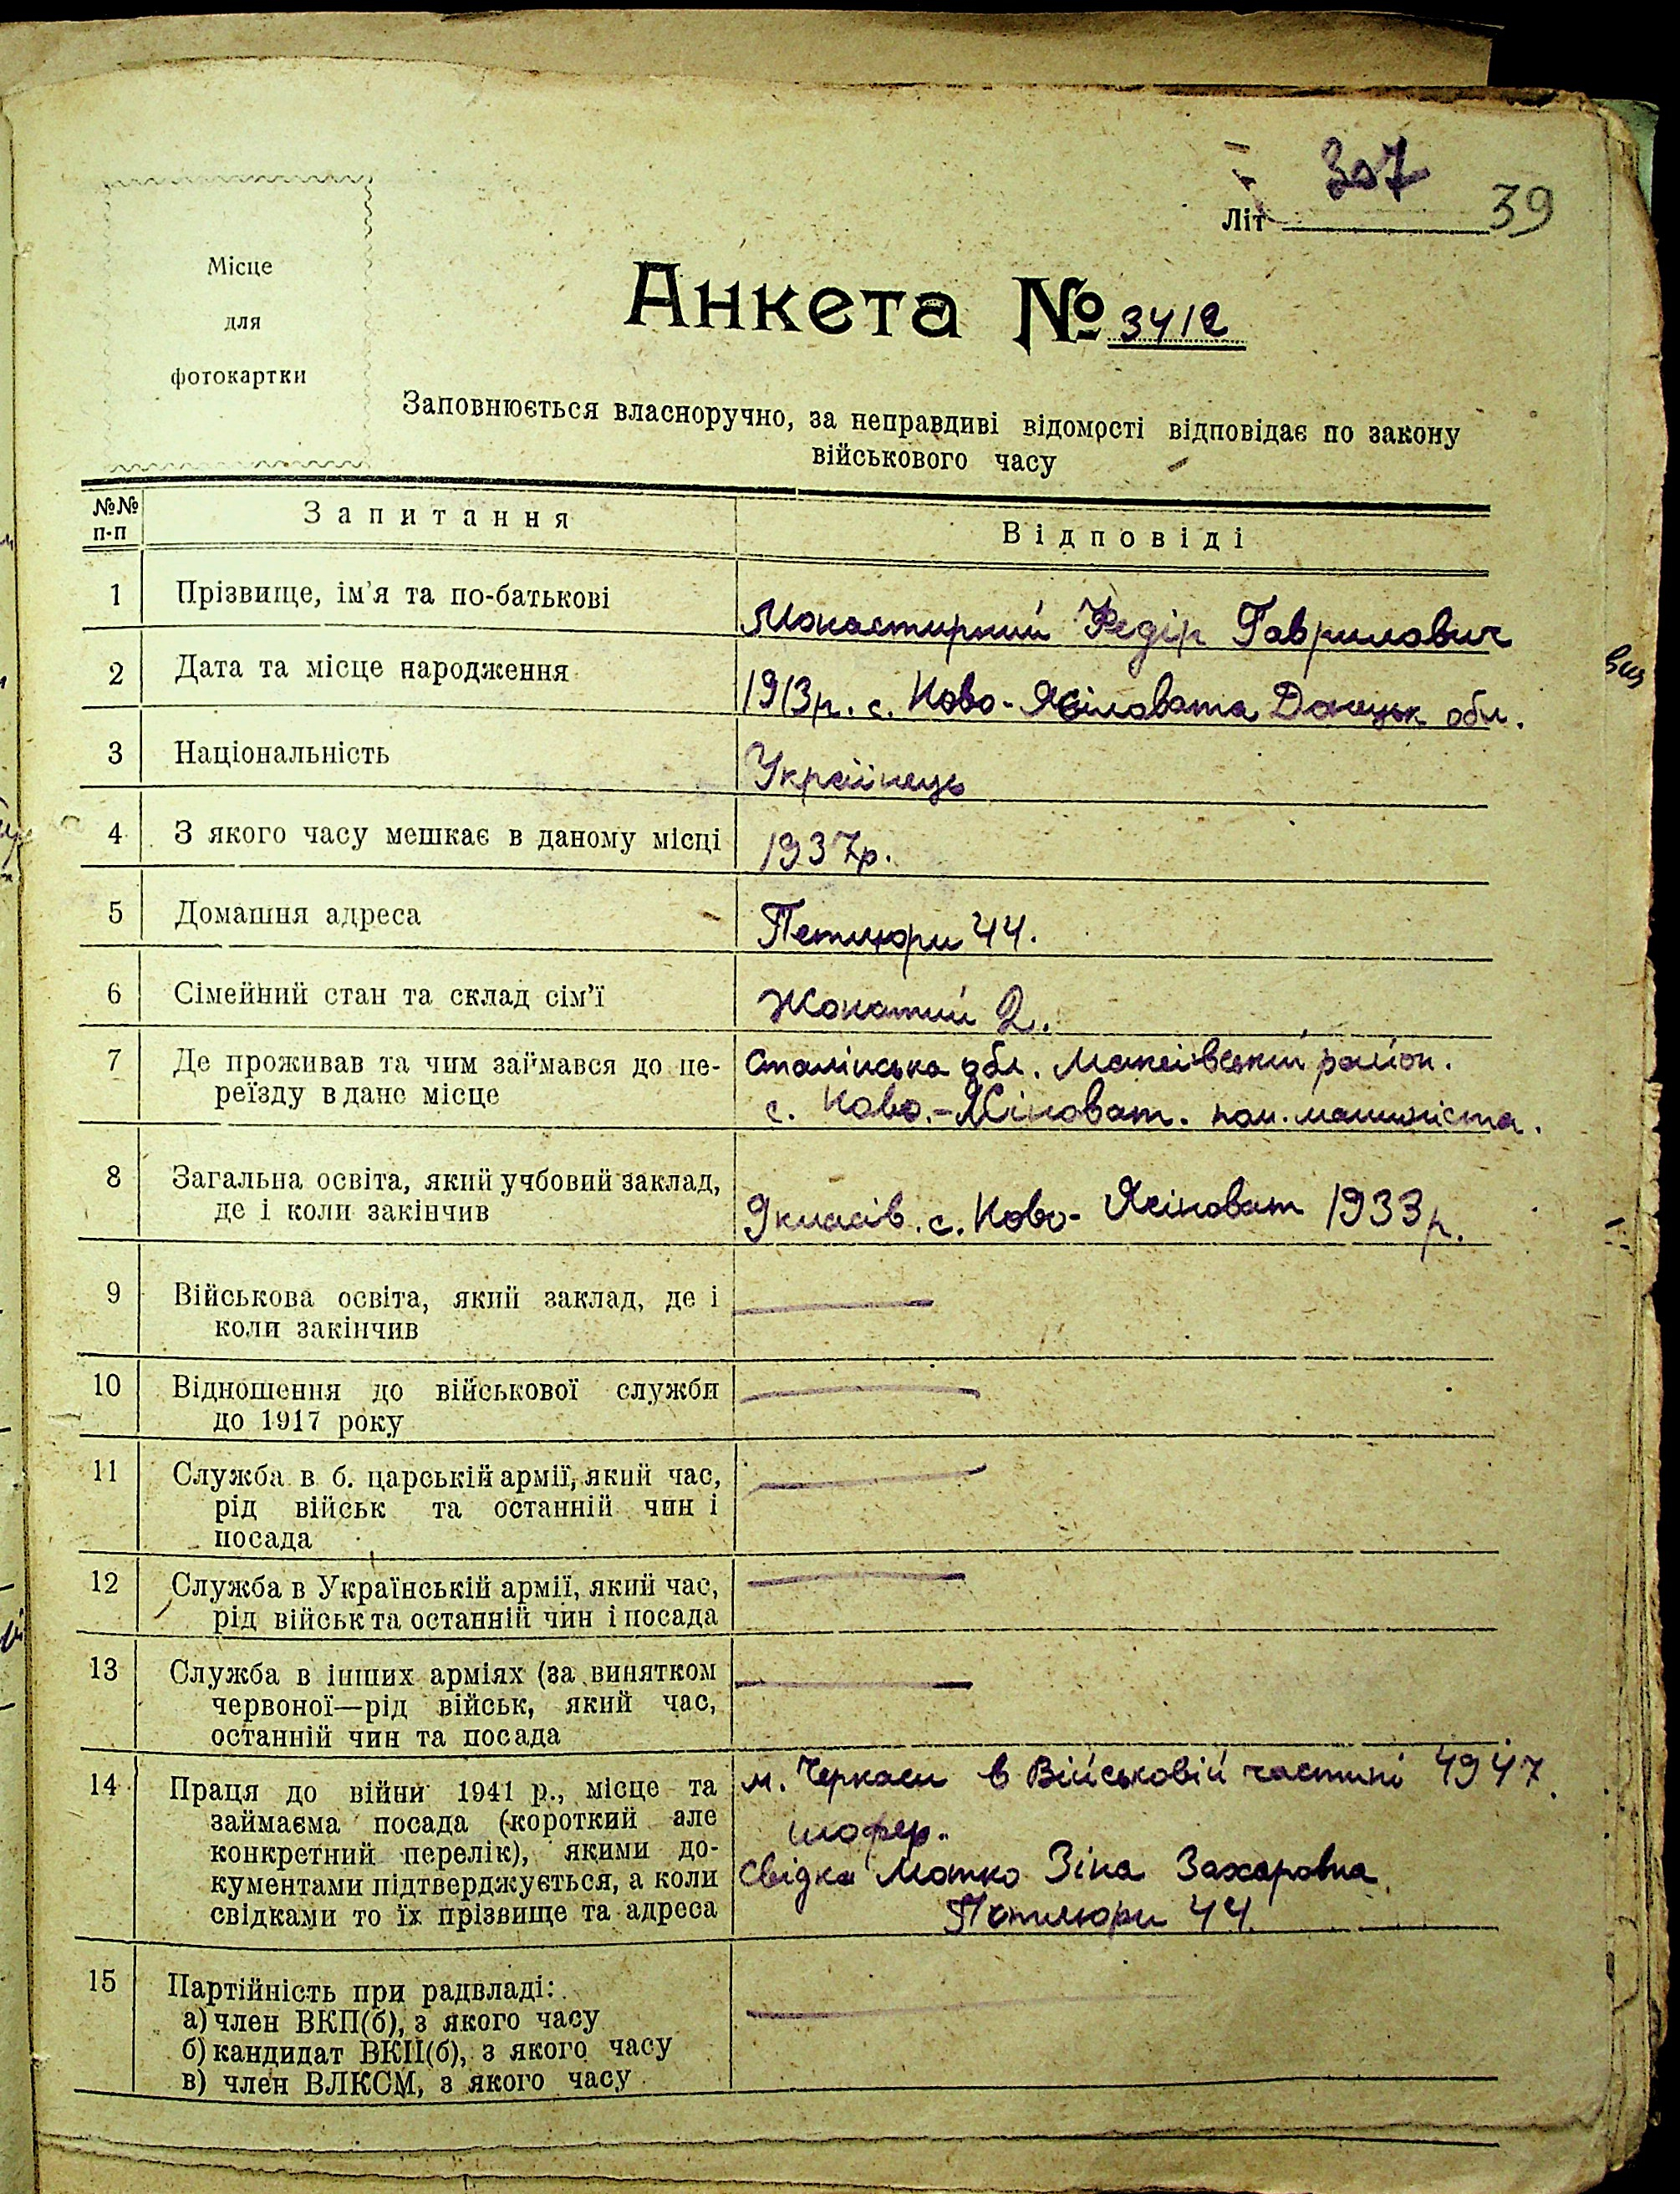 307
Літ 39
Місце
для
фотокартки
Анкета № 3412
Заповнюється власноручно, за неправдиві відомості відповідає по закону
військового часу
№№
п-п
Запитання
Відповіді
1 Прізвище, ім'я та по-батькові
Монастирний Федір Гаврилович
2 Дата та місце народження
1913р. с. Ново-Ясіновата Донецьк обл.
3 Національність
Українець
4 З якого часу мешкає в даному місці
1937р.
5 Домашня адреса
Петлюри 44.
6 Сімейний стан та склад сім'ї
Жонатий 2.
7 Де проживав та чим займався до пе-
реїзду в дане місце
Сталінська обл. Макеівський район.
с. Ново.-Ясіноват. пом. машиніста.
8 Загальна освіта, який учбовий заклад,
де і коли закінчив
9 класів. с. Ново- Ясіноват 1933р.
9 Військова освіта, який заклад, де і
коли закінчив
10 Відношення до військової служби
до 1917 року
11 Служба в б. царській армії, який час,
рід військ та останній чин і
посада
12 Служба в Українській армії, який час,
рід військ та останній чин і посада
13 Служба в інших арміях (за винятком
червоної—рід військ, який час,
останній чин та посада
14 Праця до війни 1941 р., місце та
займаєма посада (короткий але
конкретний перелік), якими до-
кументами підтверджується, а коли
свідками то їх прізвище та адреса
м. Черкаси в Військовій частині 4947.
шофер.
Свідка Мотко Зіна Захаровна
Петлюри 44.
15 Партійність при радвладі:
а) член ВКП(б), з якого часу
б) кандидат ВКП(б), з якого часу
в) член ВЛКСМ, з якого часу